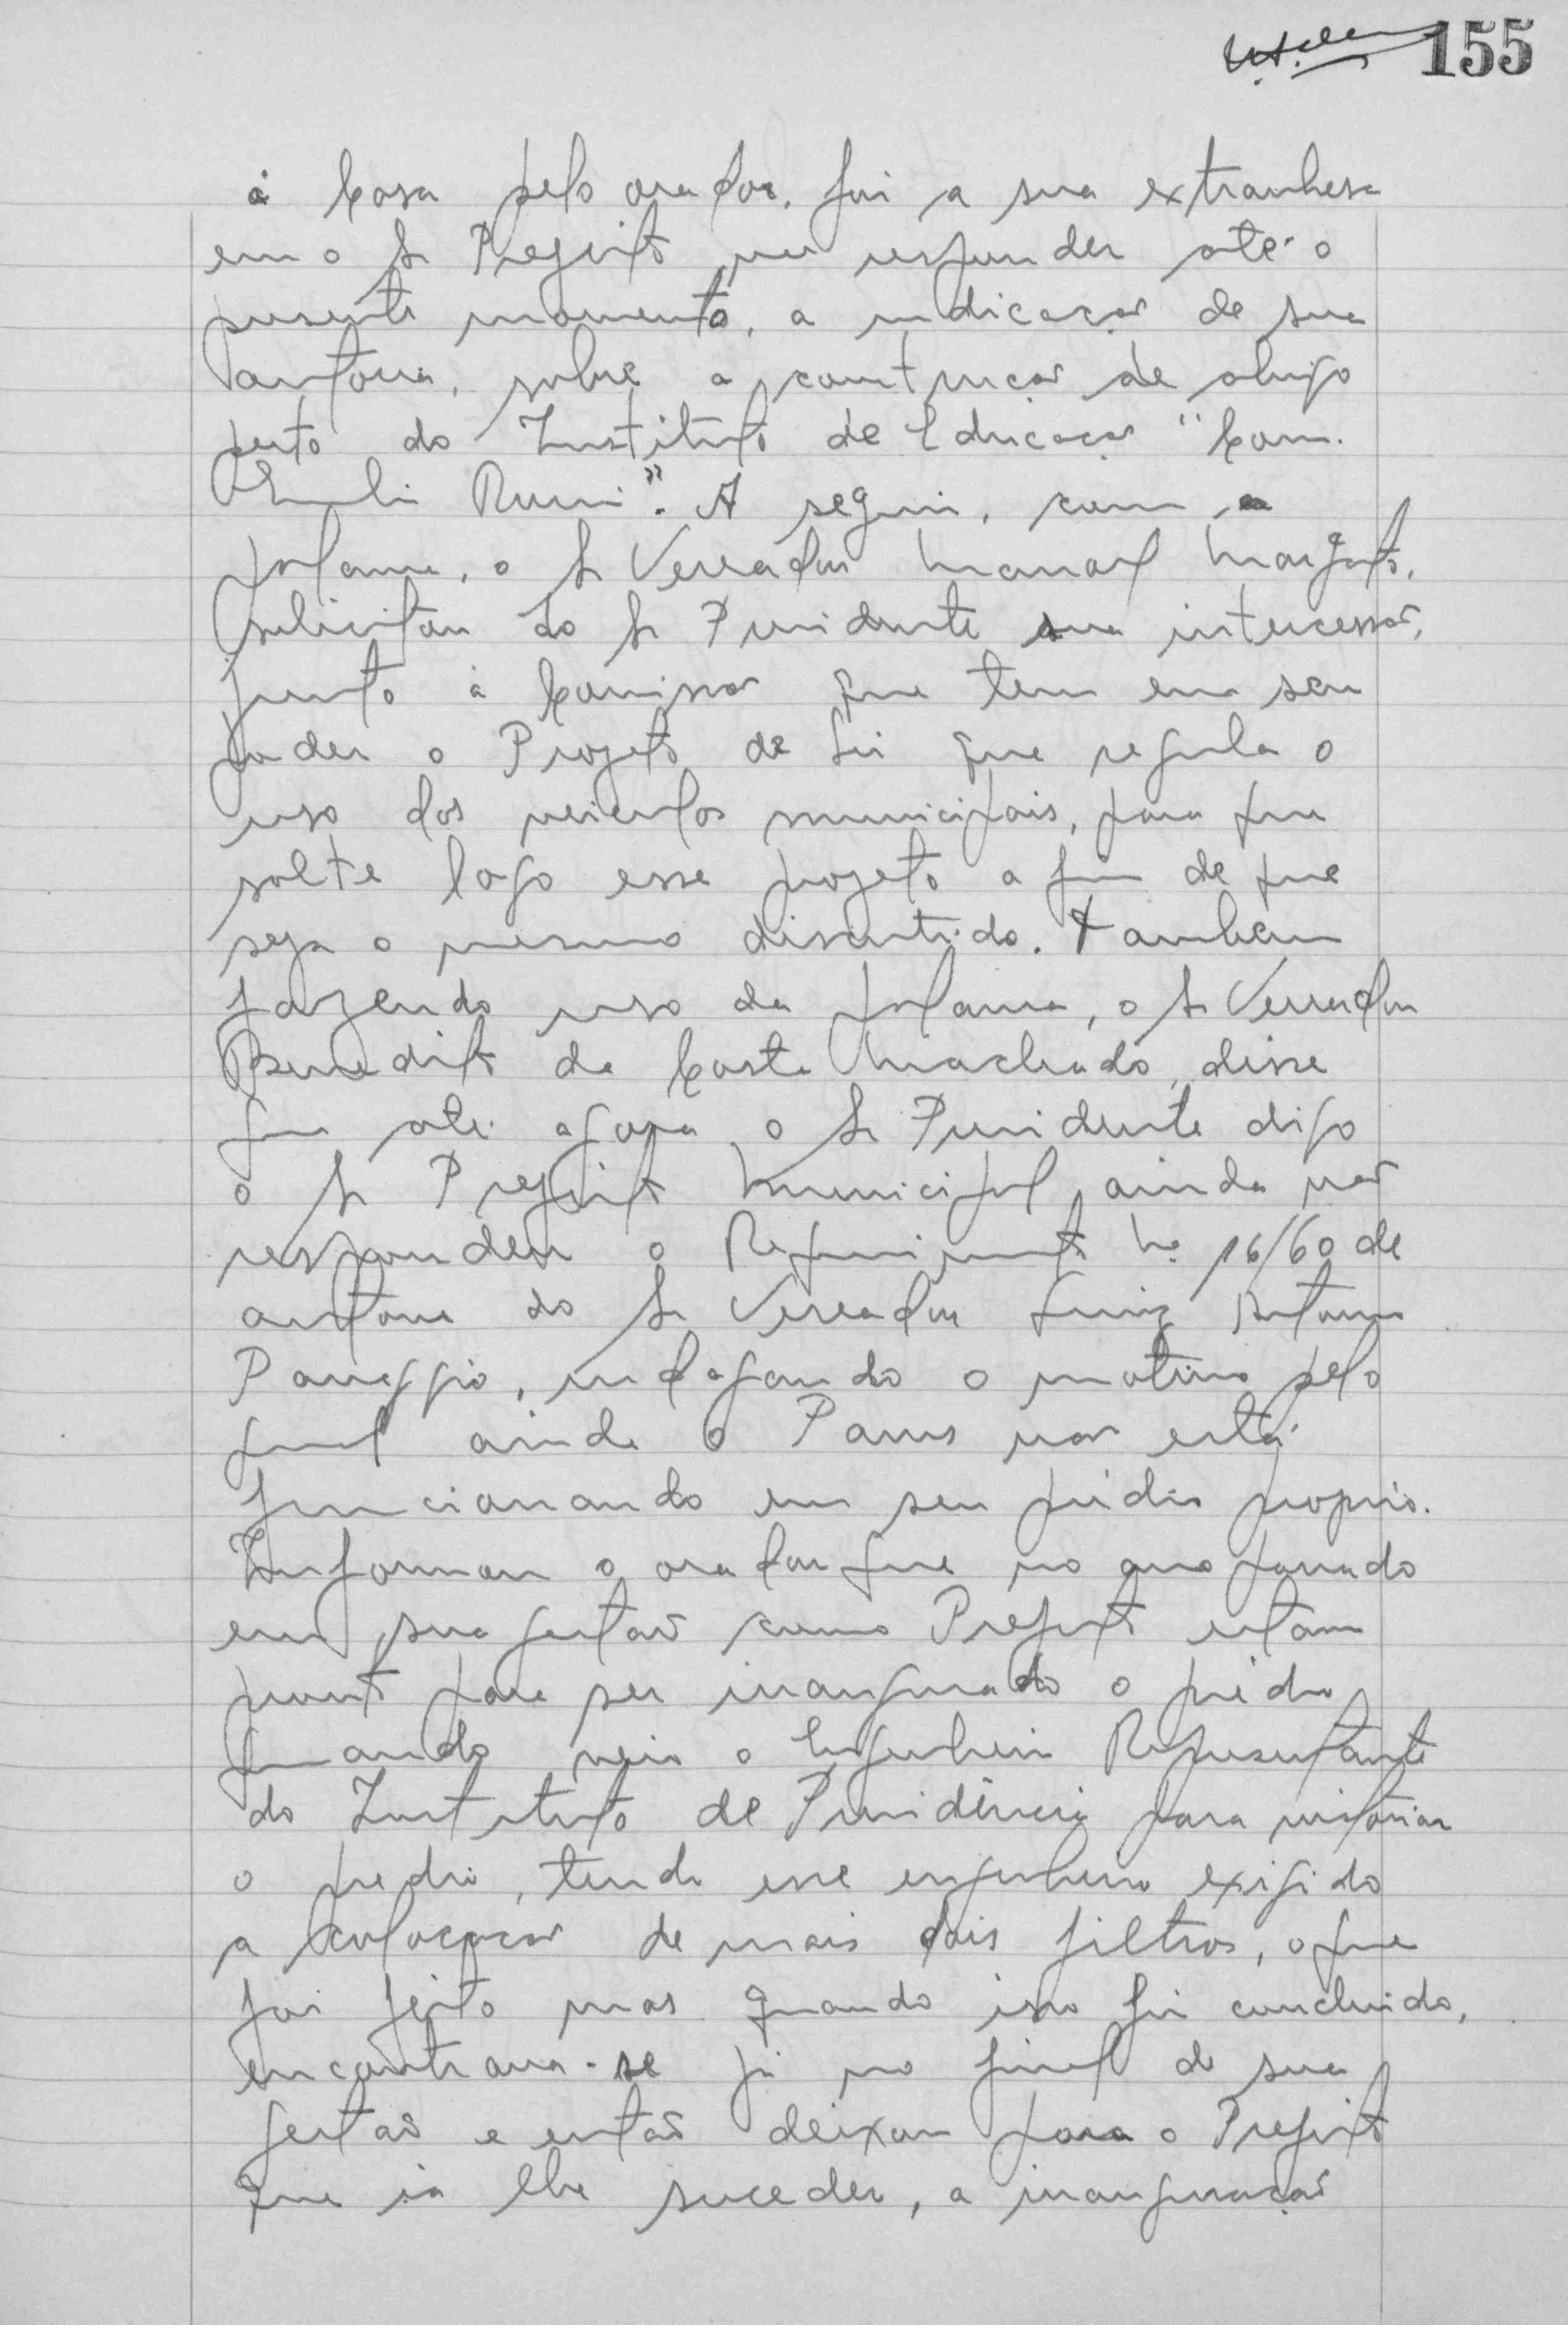 155
à Casa pelo orador, foi a sua extranhesa
em o Sr Prefeito não responder até o
presente momento, a indicação de sua
autoria, sobre a construção de abrigo
perto do Instituto de Educação "Com.
Emilio Romi". A seguir, com a
palavra, o Sr Vereador Manoel Margato,
solicitou do Sr Presidente sua intercessão,
junto à Comissão que tem em seu
poder o Projeto de Lei que regula o
uso dos veiculos municipais, para que
solte logo esse projeto a fim de que
seja o mesmo discutido. Também
fazendo uso da palavra, o Sr Vereador
Benedito da Costa Machado, disse
que até agora o Sr Presidente digo
o Sr Prefeito Municipal, ainda não
respondeu o Requerimento Nº 16/60 de
autoria do Sr Vereador Luiz Antonio
Panuggio, indagando o motivo pelo
qual ainda o Pams não está
funcionando em seu prédio proprio.
Informou o orador que no ano passado
em sua gestão como Prefeito estava
pronto para ser inaugurado o prédio
quando veio o Engenheiro Representante
do Instituto de Previdência para vistoriar
o predio, tendo esse engenheiro exigido
a colocação de mais dois filtros, o que
foi feito mas quando isso foi concluido,
encontrava-se já no final de sua
gestão e então deixou para o Prefeito
que ia lhe suceder, a inauguração